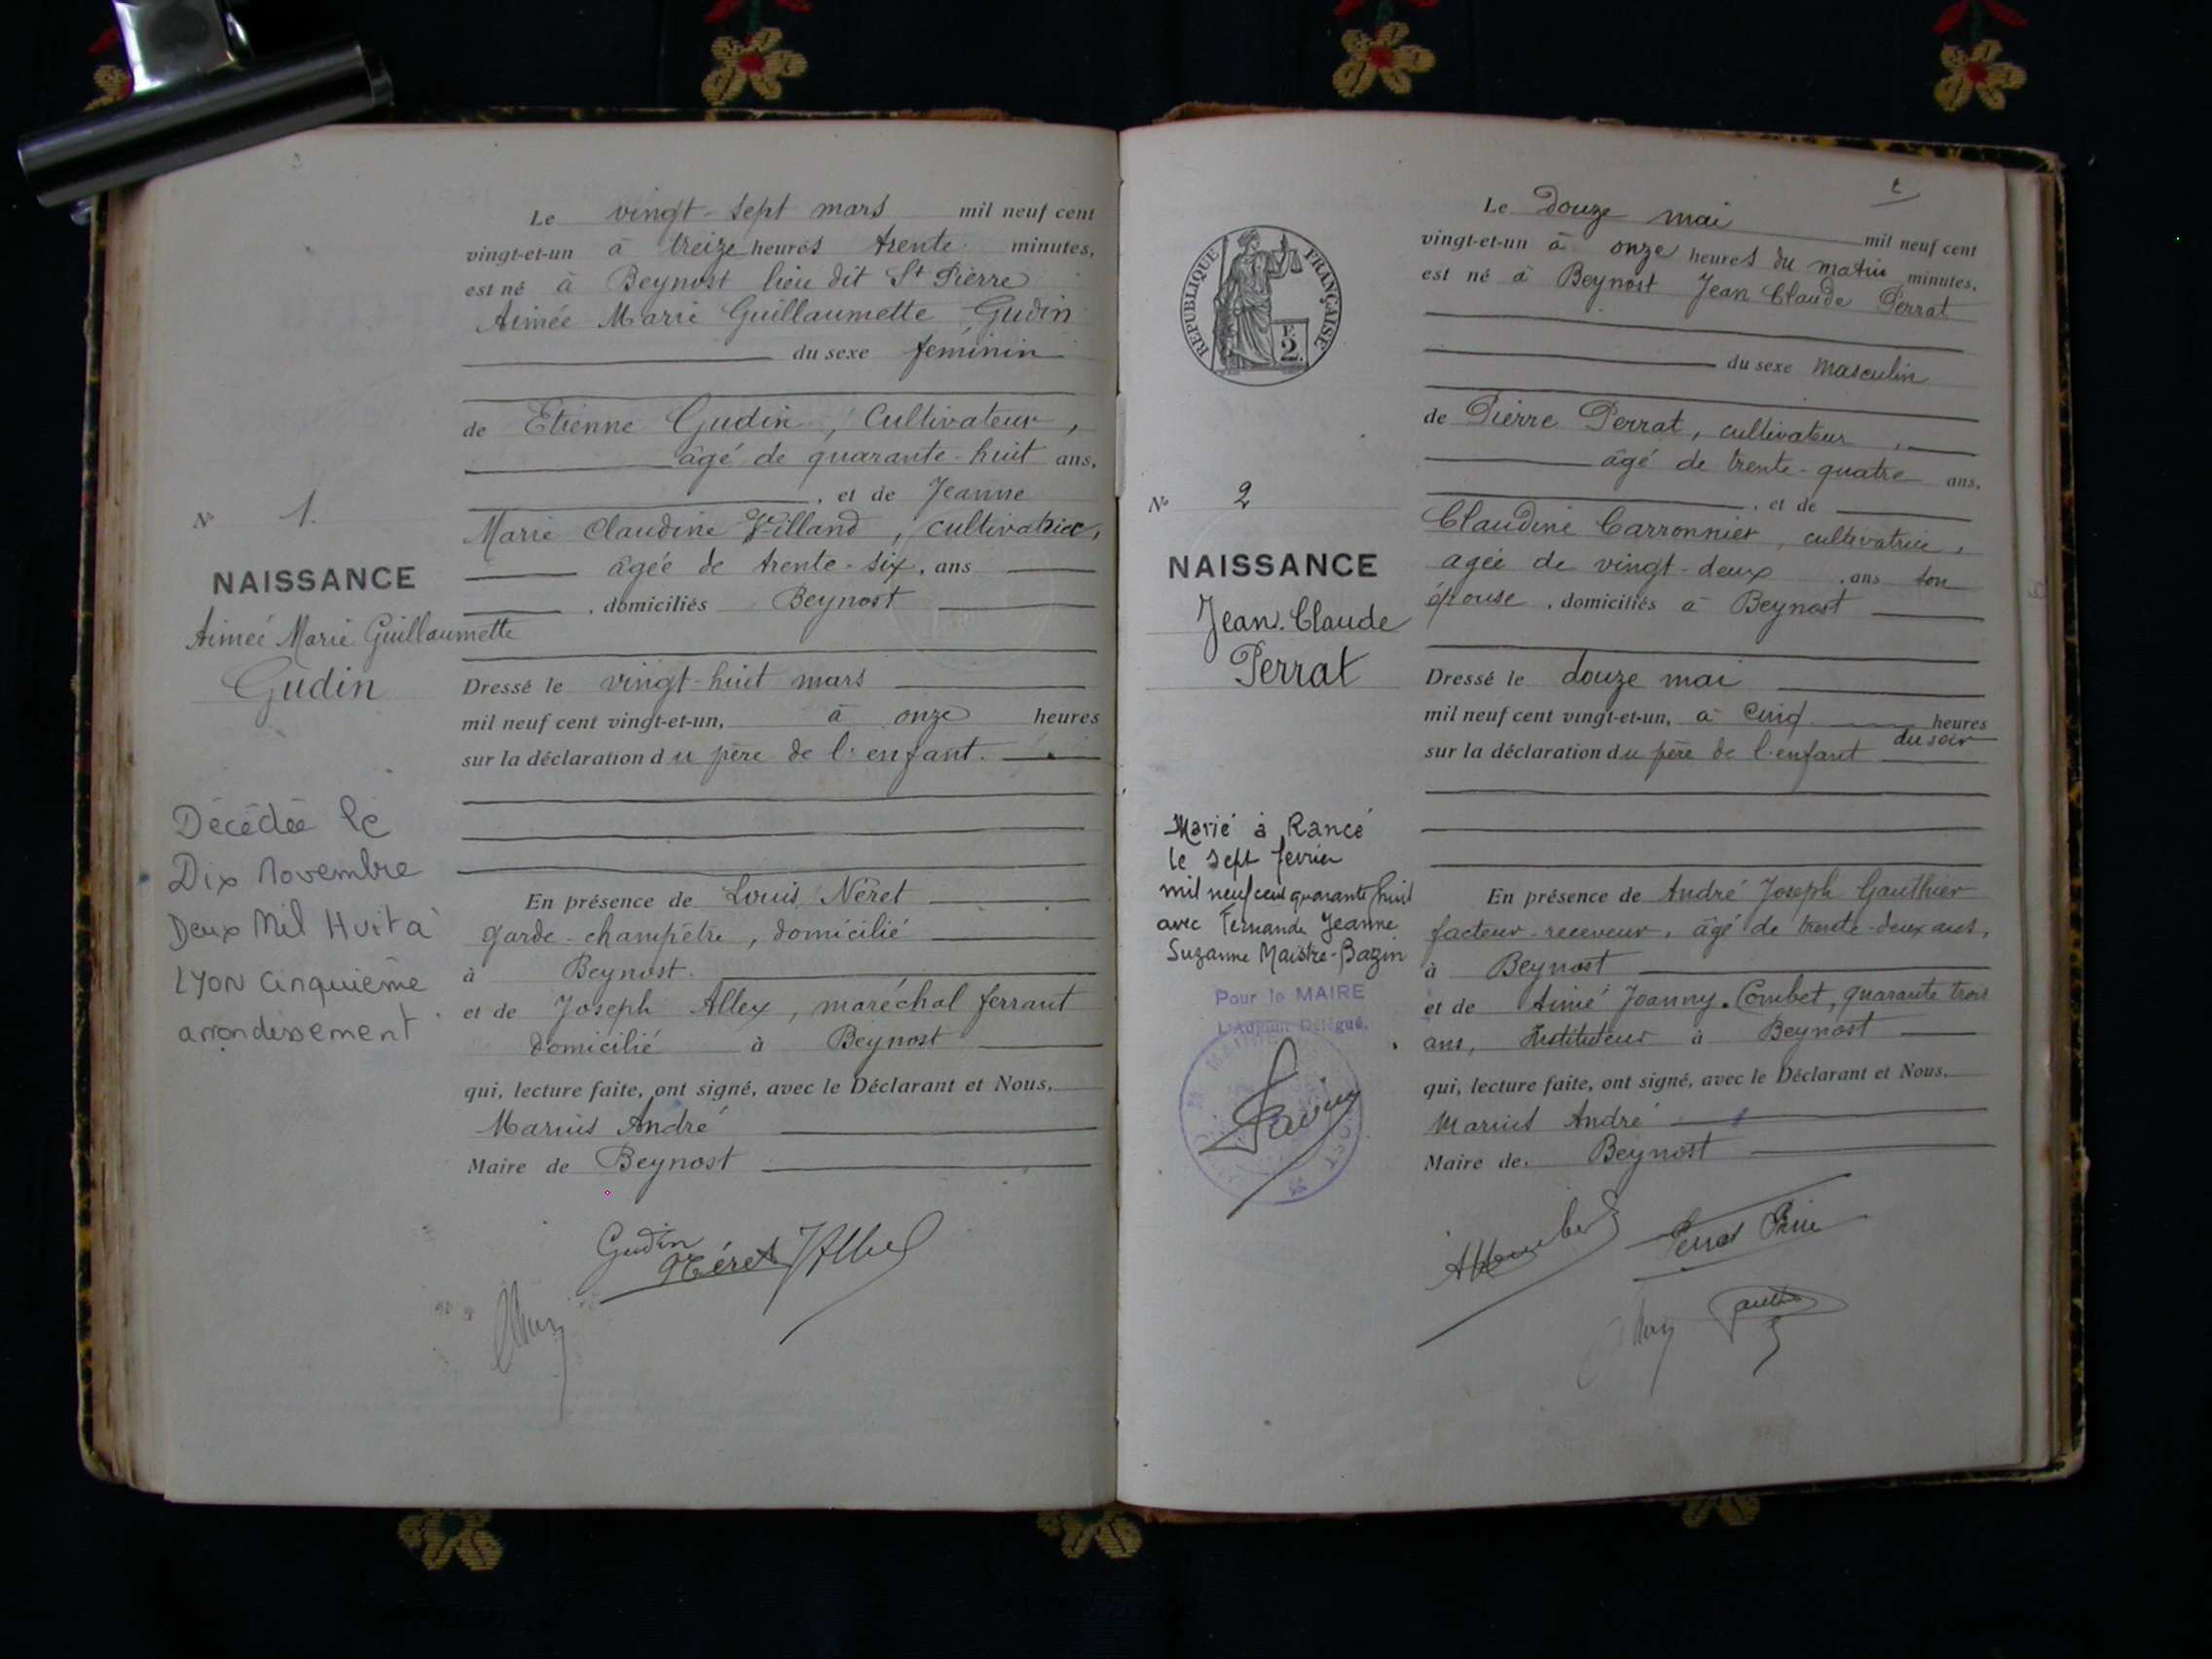 Le vingt-sept mars mil neuf cent
vingt-et-un à treize heures trente minutes,
est né à Beynost lieu dit St Pierre
Aimée Marie Guillaumette Gudin
du sexe feminin
de Etienne Gudin, Cultivateur,
âgé de quarante-huit ans,
, et de Jeanne
Marie Claudine Villand, cultivatrice,
âgée de trente-six, ans
, domiciliés Beynost
Dressé le vingt-huit mars
mil neuf cent vingt-et-un, à onze heures
sur la déclaration du père de l'enfant.
En présence de Louis Néret
garde-champêtre, domicilié
à Beynost.
et de Joseph Allex, maréchal ferrant
domicilié à Beynost
qui, lecture faite, ont signé, avec le Déclarant et Nous,
Marius André
Maire de Beynost
Gudin
Néret JAllex
N° 1.
NAISSANCE
Aimée Marie Guillaumette
Gudin
Décédée le
Dix Novembre
Deux Mil Huit à
Lyon cinquième
arrondissement
2
RÉPUBLIQUE FRANÇAISE
2
Le Douze mai mil neuf cent
vingt-et-un à onze heures du matin minutes,
est né à Beynost Jean Claude Perrat
du sexe masculin
de Pierre Perrat, cultivateur,
âgé de trente-quatre ans,
, et de
Claudine Carronnier, cultivatrice,
agée de vingt-deux, ans son
épouse, domiciliés à Beynost
Dressé le douze mai
mil neuf cent vingt-et-un, à Cinq heures
du soir
sur la déclaration du père de l'enfant
En présence de André Joseph Gauthier
facteur-receveur, âgé de trente-deux ans,
à Beynost
et de Aimé Joanny Combet, quarante trois
ans, Instituteur à Beynost
qui, lecture faite, ont signé, avec le Déclarant et Nous,
Marius André
Maire de. Beynost
Perrat Pierre
N° 2
NAISSANCE
Jean-Claude
Perrat
Marié à Rancé
le sept fevrier
mil neuf cent quarante huit
avec Fernande Jeanne
Suzanne Maistre-Bazin
Pour le MAIRE
L'Adjoint Délégué,